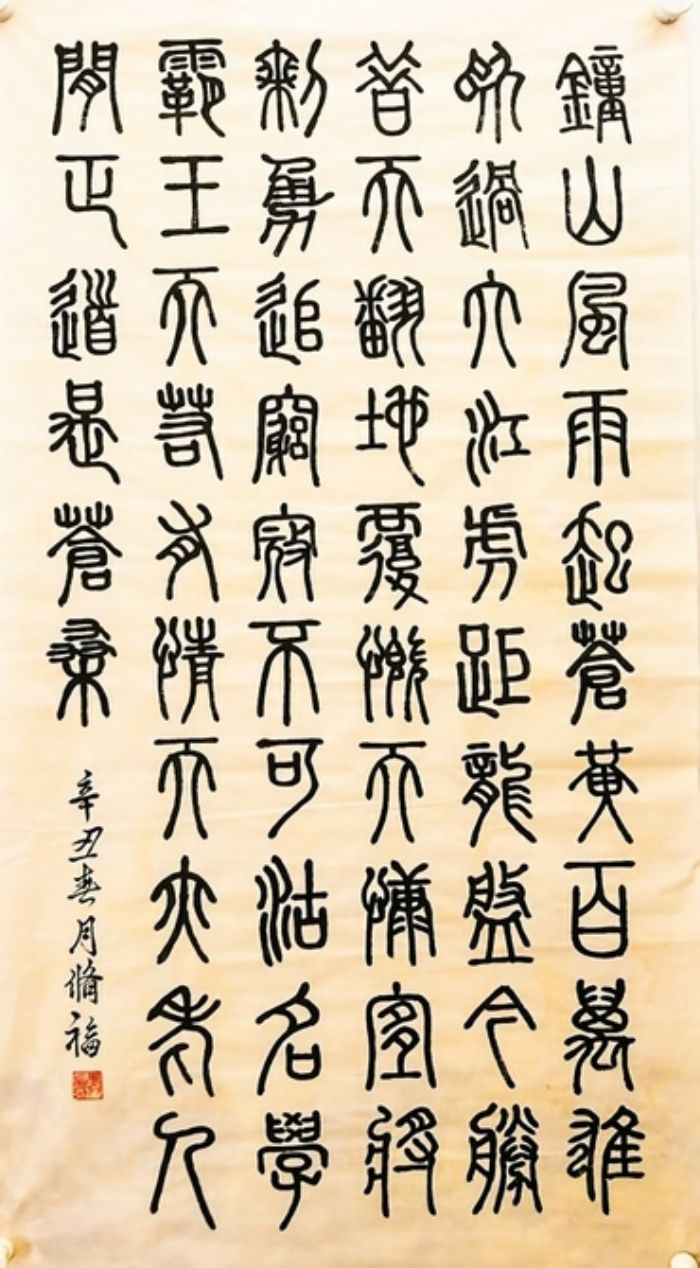 鐘山風雨起蒼黃百萬雄
師過大江虎距龍盤今勝
昔天翻地覆慨而慷宜將
剩勇追窮寇不可沽名學
霸王天若有情天亦老人
閒正道是蒼桑
辛丑春月脩福